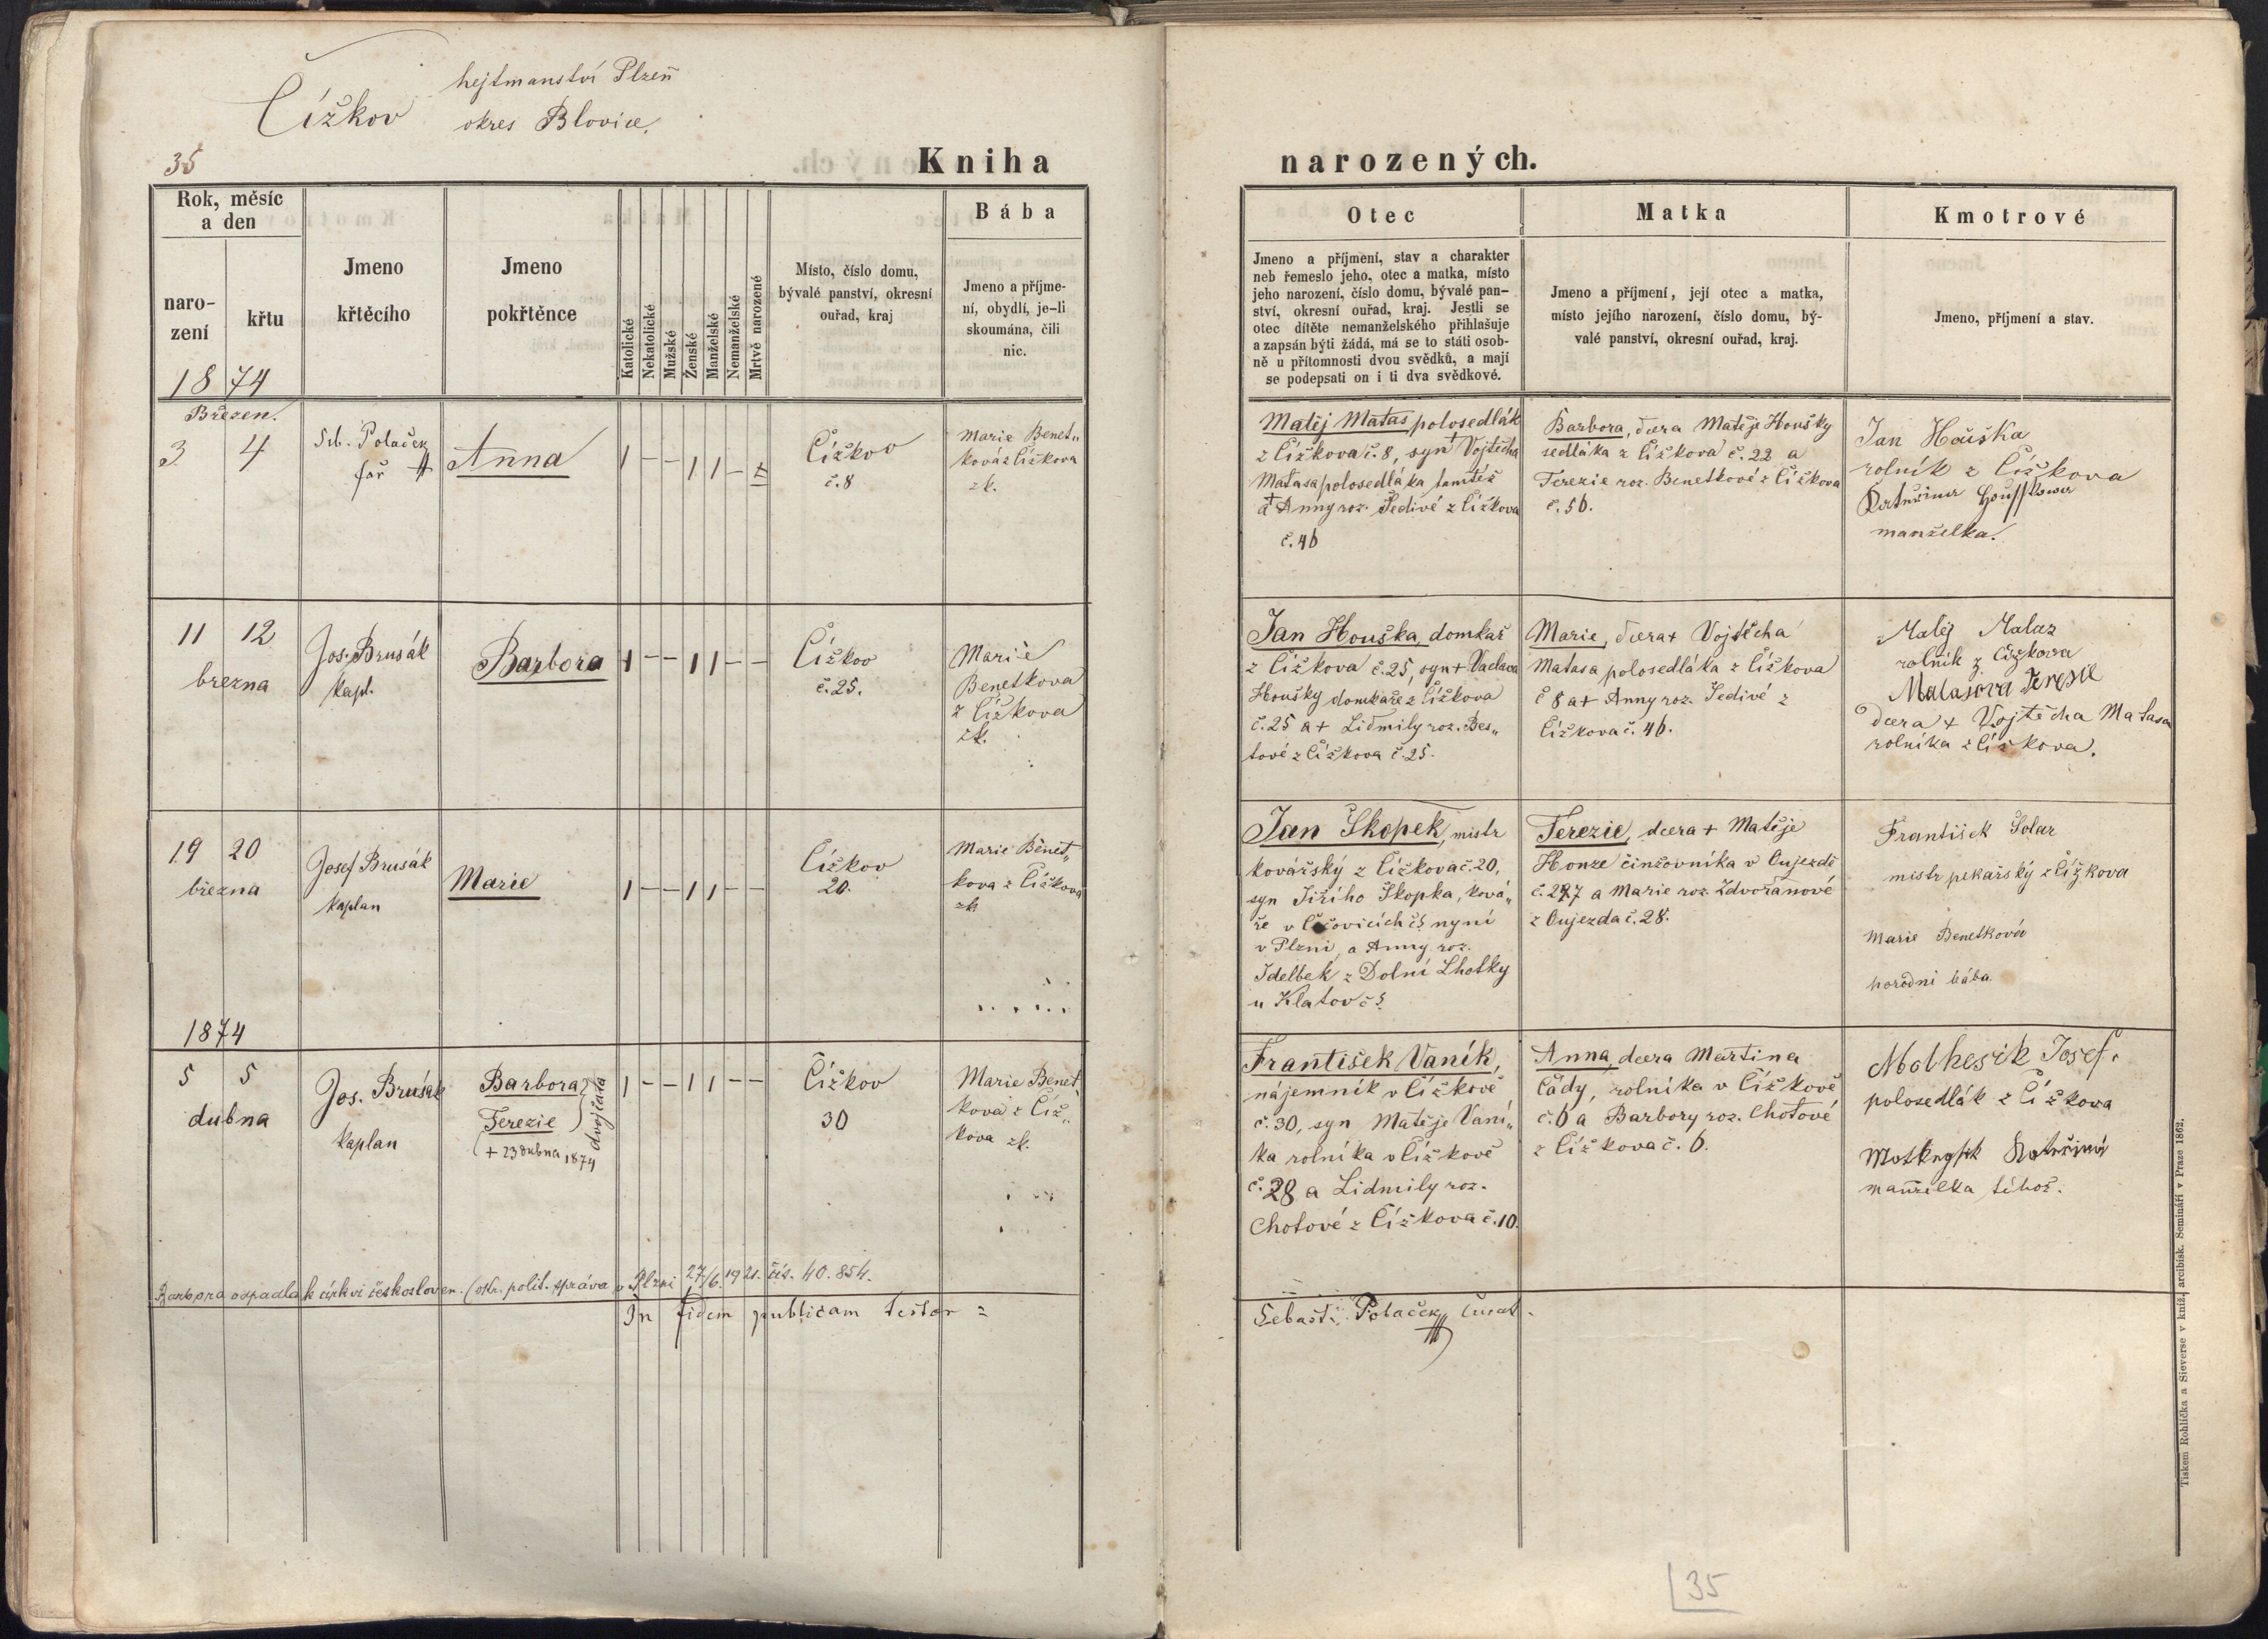 Čížkov
hejtmanství Plzeň
okres Blovice.
35
Kniha narozených.
Rok, měsíc
a den
naro-
zení
křtu
1874
Jmeno
křtěcího
Jmeno
pokřtěnce
Katolické
Nekatolické
Mužské
Ženské
Manželské
Nemanželské
Mrtvě narozené
Místo, číslo domu,
bývalé panství, okresní
ouřad, kraj
Bába
Jmeno a příjme-
ní, obydlí, je-li
skoumána, čili
nic.
Otec
Jmeno a příjmení, stav a charakter
neb řemeslo jeho, otec a matka, místo
jeho narození, číslo domu, bývalé pan-
ství, okresní ouřad, kraj. Jestli se
otec dítěte nemanželského přihlašuje
a zapsán býti žádá, má se to státi osob-
ně u přítomnosti dvou svědků, a mají
se podepsati on i ti dva svědkové.
Matka
Jmeno a příjmení, její otec a matka,
místo jejího narození, číslo domu, bý-
valé panství, okresní ouřad, kraj.
Kmotrové
Jmeno, příjmení a stav.
Březen.
3. 4
Seb. Polaček
far
Anna
1 - - 1 1 -
Čížkov
č. 8
Marie Benet„
ková z Čížkova
zk.
Matěj Matas polosedlák
z Čížkova č. 8, syn † Vojtěcha
Matasa polosedláka tamtéž
a † Anny roz. Šedivé z Čížkova
č. 46
Barbora, dcera Matěje Houšky
sedláka z Čížkova č. 22 a
Terezie roz. Benetkové z Čížkova
č. 56.
Jan Houška
rolník z Čížkova
manželka.
11 12
března
Jos. Brusák
kapl.
Barbora
1 - - 1 1 - -
Čížkov
č. 25.
Marie
Benetkova
z Čížkova
zk.
Jan Houška, domkař
z Čížkova č. 25, syn † Vaclava
Houšky domkaře z Čížkova
č. 25 a † Lidmily roz. Bes„
tové z Čížkova č. 25.
Marie, dcera † Vojtěcha
Matasa polosedláka z Čížkova
č 8 a † Anny roz. Šedivé z
Čížkova č. 46.
Matěj Mataz
rolník z Čížkova
Matasova Terezie
dcera † Vojtěcha Matasa
rolníka z Čížkova.
19 20
března
Josef Brusák
kaplan
Marie
1 - - 1 1 - -
Čížkov
20.
Marie Benet„
kova z Čížkova
zk
Jan Škopek, mistr
kovářský z Čížkova č. 20,
syn Jiřího Škopka, ková„
ře v nyní
v Plzni, a Anny roz.
Idelbek z Dolní Lhotky
u Klatov č
Terezie, dcera † Matěje
Honze činžovníka v Oujezdě
č. 27 a Marie roz. Zdvořanové
z Oujezda č. 28.
František Solar
mistr pekařský z Čížkova
Marie Benetková
porodní bába
1874
5 5
dubna
Jos. Brusák
kaplan
Barbora
Terezie
dvojčata
† 23 dubna 1874
1 - - 1 1 - -
Čížkov
30
Marie Benet„
kova z Číž„
kova zk.
František Vaník,
nájemník v Čížkově
č. 30, syn Matěje Vaní„
ka rolníka v Čížkově
č. 28 a Lidmily roz.
Chotové z Čížkova č. 10.
Anna, dcera Martina
Čády, rolníka v Čížkově
č. 6 a Barbory roz. Chotové
z Čížkova č. 6.
Motkesik Josef.
polosedlák z Čížkova
manželka téhož.
Barbora odpadla k církvi českosloven. (okr. polit. správa v Plzni 27/6. 1921. čís. 40.854.
In fidem publicam testor =
Sebast. Polaček
Tiskem Rohlíčka a Sieverse v kníž. arcibisk. Semináři v Praze 1862.
35